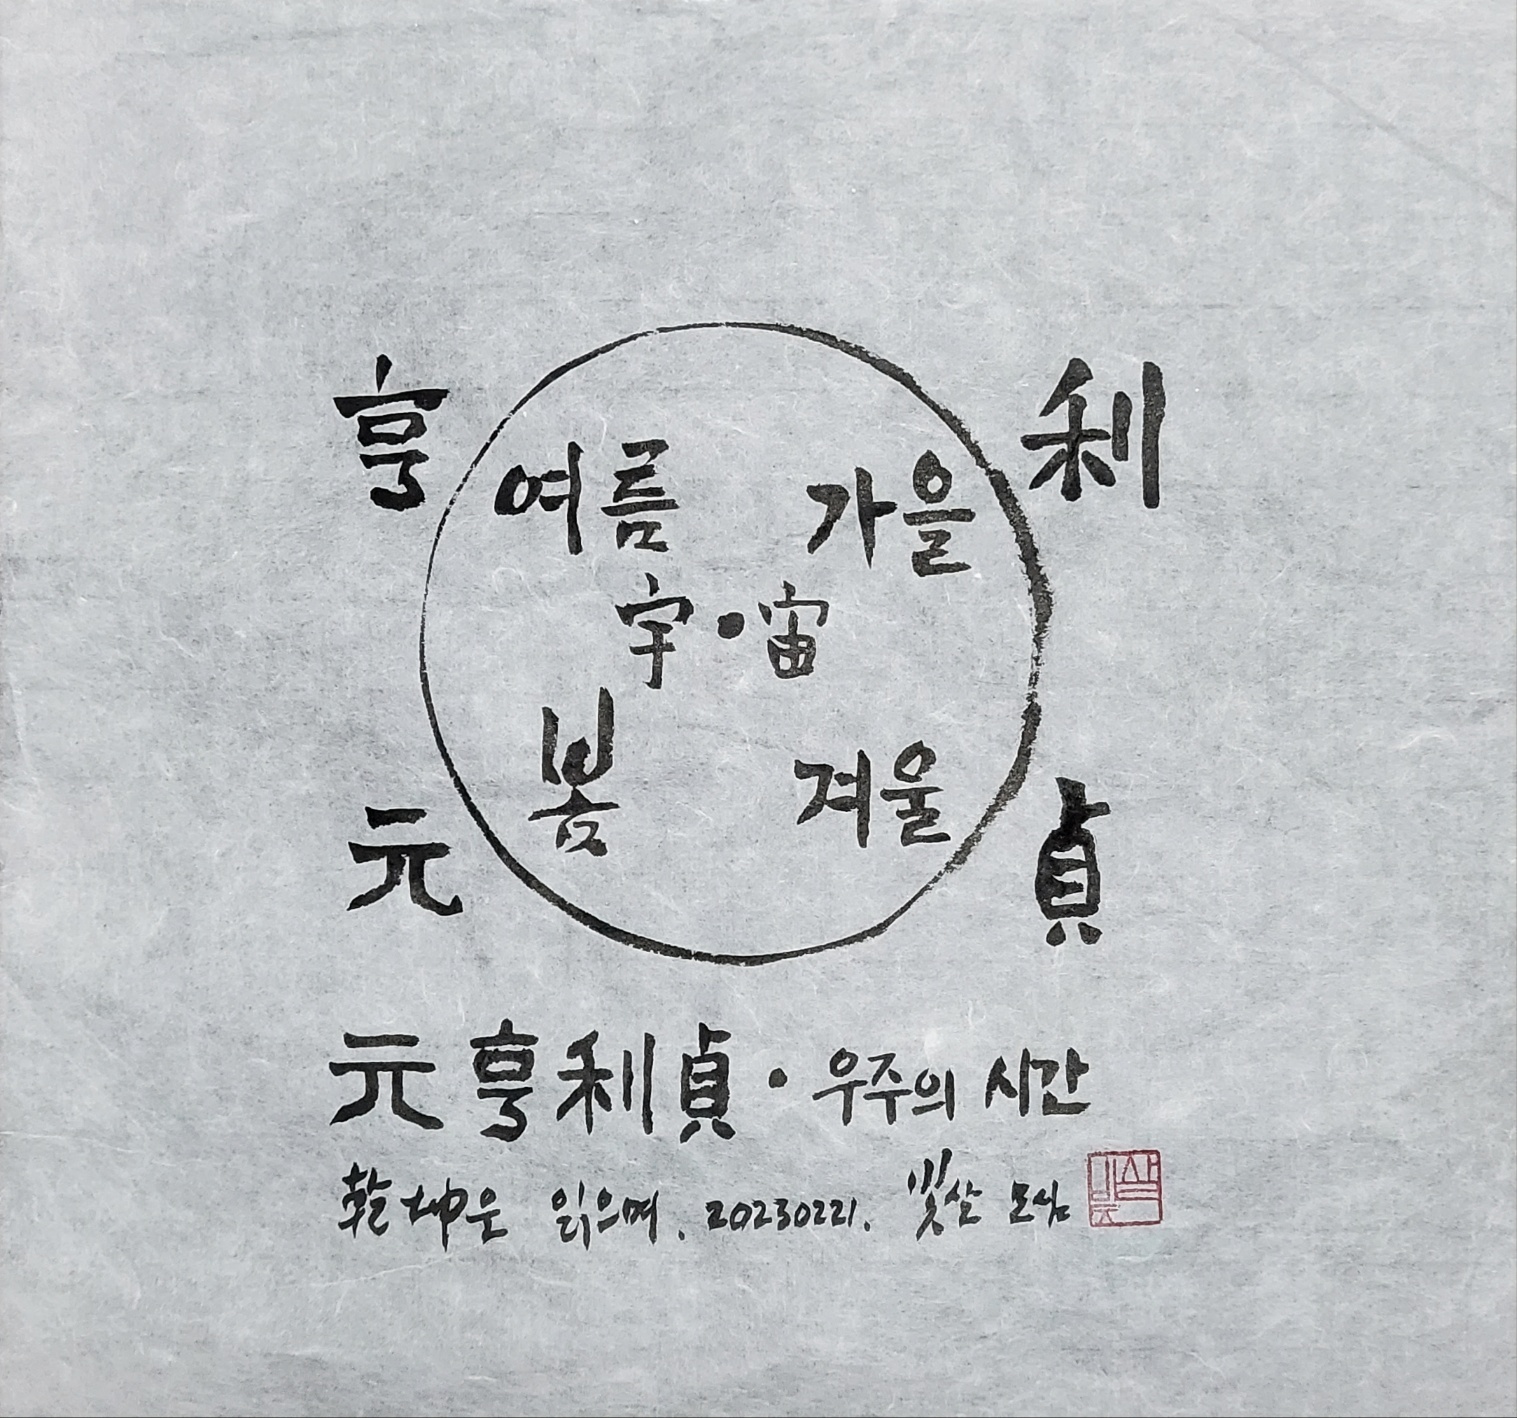 亨 利
여름 가을
宇·宙
봄 겨울
元 貞
元亨利貞·우주의 시간
乾坤을 읽으며. 20230221. 빛살 모심
빛살